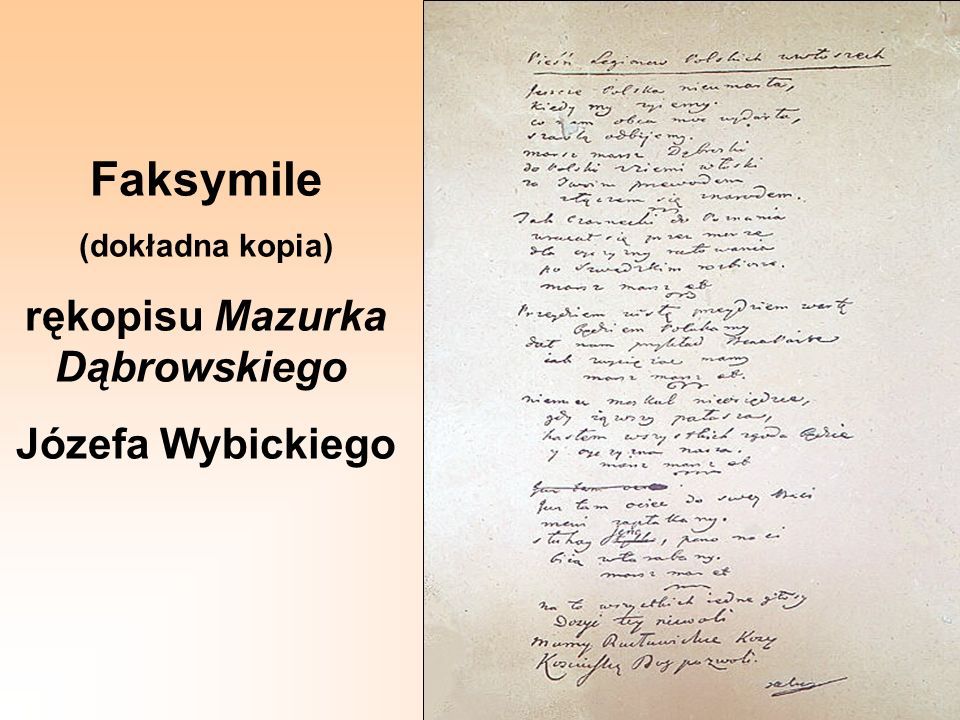 Faksymile
(dokładna kopia)
rękopisu Mazurka
Dąbrowskiego
Józefa Wybickiego
Pieśń Legionow Polskich we włoszech
Jeszcze Polska nieumarła,
kiedy my żyiemy.
co nam obca moc wydarła,
szablą odbijemy.
marsz marsz Dąbrowski
do Polski z ziemi włoski
za Twoim przewodem
złączem się z narodem.
Jak Czarnecki do Poznania
wracał się przez morze
dla oyczyzny ratowania
po Szwedzkim rozbiorze.
marsz marsz et
Przeydziem wisłę przeydziem wartę
będziem Polakamy
dał nam przykład Bonaparte
iak zwyciężać mamy
marsz marsz et.
niemiec moskal nieosiędzie,
gdy iąwszy pałasza,
hasłem wszystkich zgoda będzie
y oyczyzna nasza.
marsz marsz et
Jusz tam ociec do swey Basi
mówi zapłakany.
słuchay jeno, pono nasi
biią w tarabany.
marsz mar et
na to wszystkich iedne głosy
Dosyć tey niewoli
mamy Racławickie Kosy
Kosciuszkę Bog pozwoli.